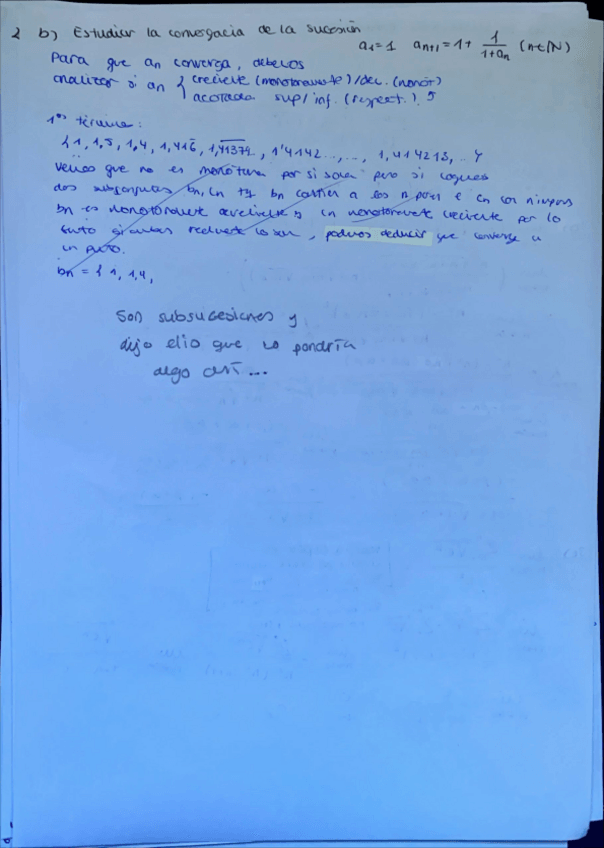 2 b) Estudiar la convergacia de la sucesión a₁=1 aₙ₊₁=1+ 1/(1+aₙ) (n∈ℕ)
Para que an converga, debemos
analizar si an { creciente (monotonamente)/dec. (monót)
acotada sup/inf. (respect.).
1ᵒˢ términos:
{1, 1,5, 1,4, 1,416, 1,41379, 1'4142..., ..., 1,414213, ...}
vemos que no es monótona por si sola pero si cogemos
dos bn, cn tq bn a los n pares e cn con n impares
bn es monotonamente decreciente y cn monotonamente creciente por lo
tanto, podemos deducir que converge a
un punto.
bn = { 1, 1,4,
Son subsucesiones y
dijo elio que lo pondría
algo así...